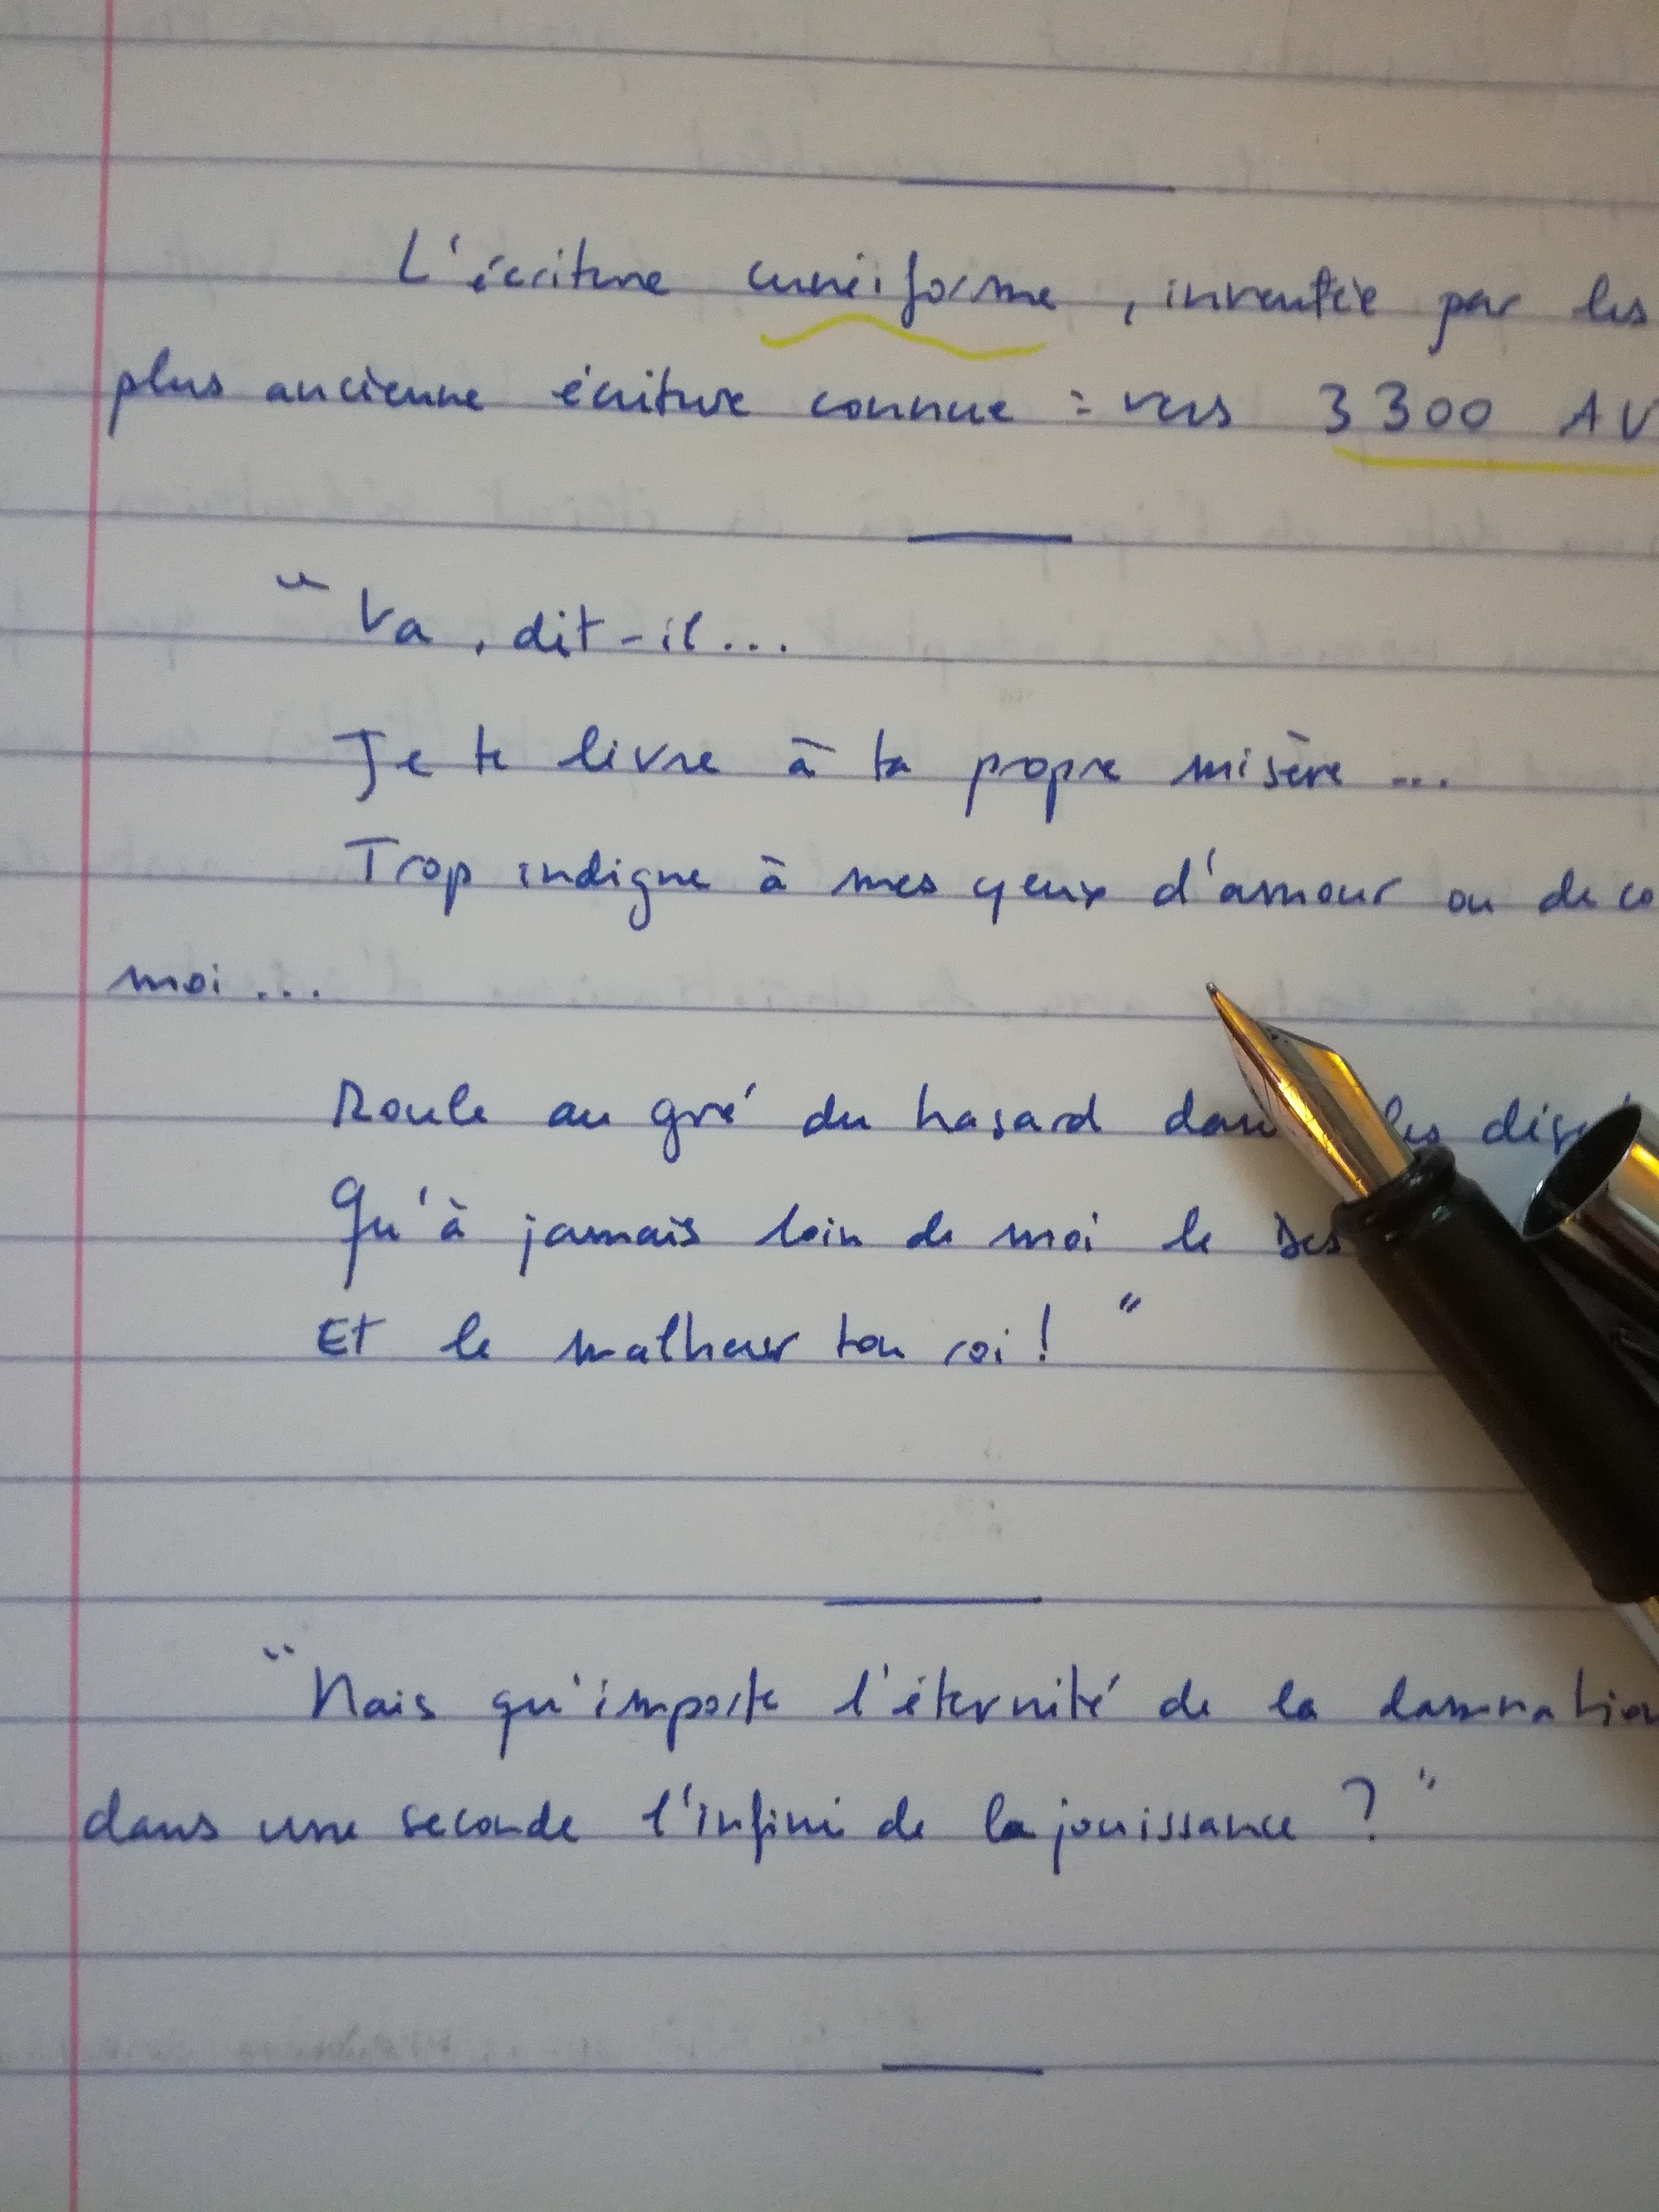 L'écriture cunéiforme, inventée par les
plus ancienne écriture connue = vers 3300 AV
"Va, dit-il...
Je te livre à ta propre misère...
Trop indigne à mes yeux d'amour ou de co
moi...
Roule au gré du hasard dans les
Qu'à jamais loin de moi le Des
Et le malheur ton roi!"
"Mais qu'importe l'éternité de la damnation
dans une seconde l'infini de la jouissance ?"